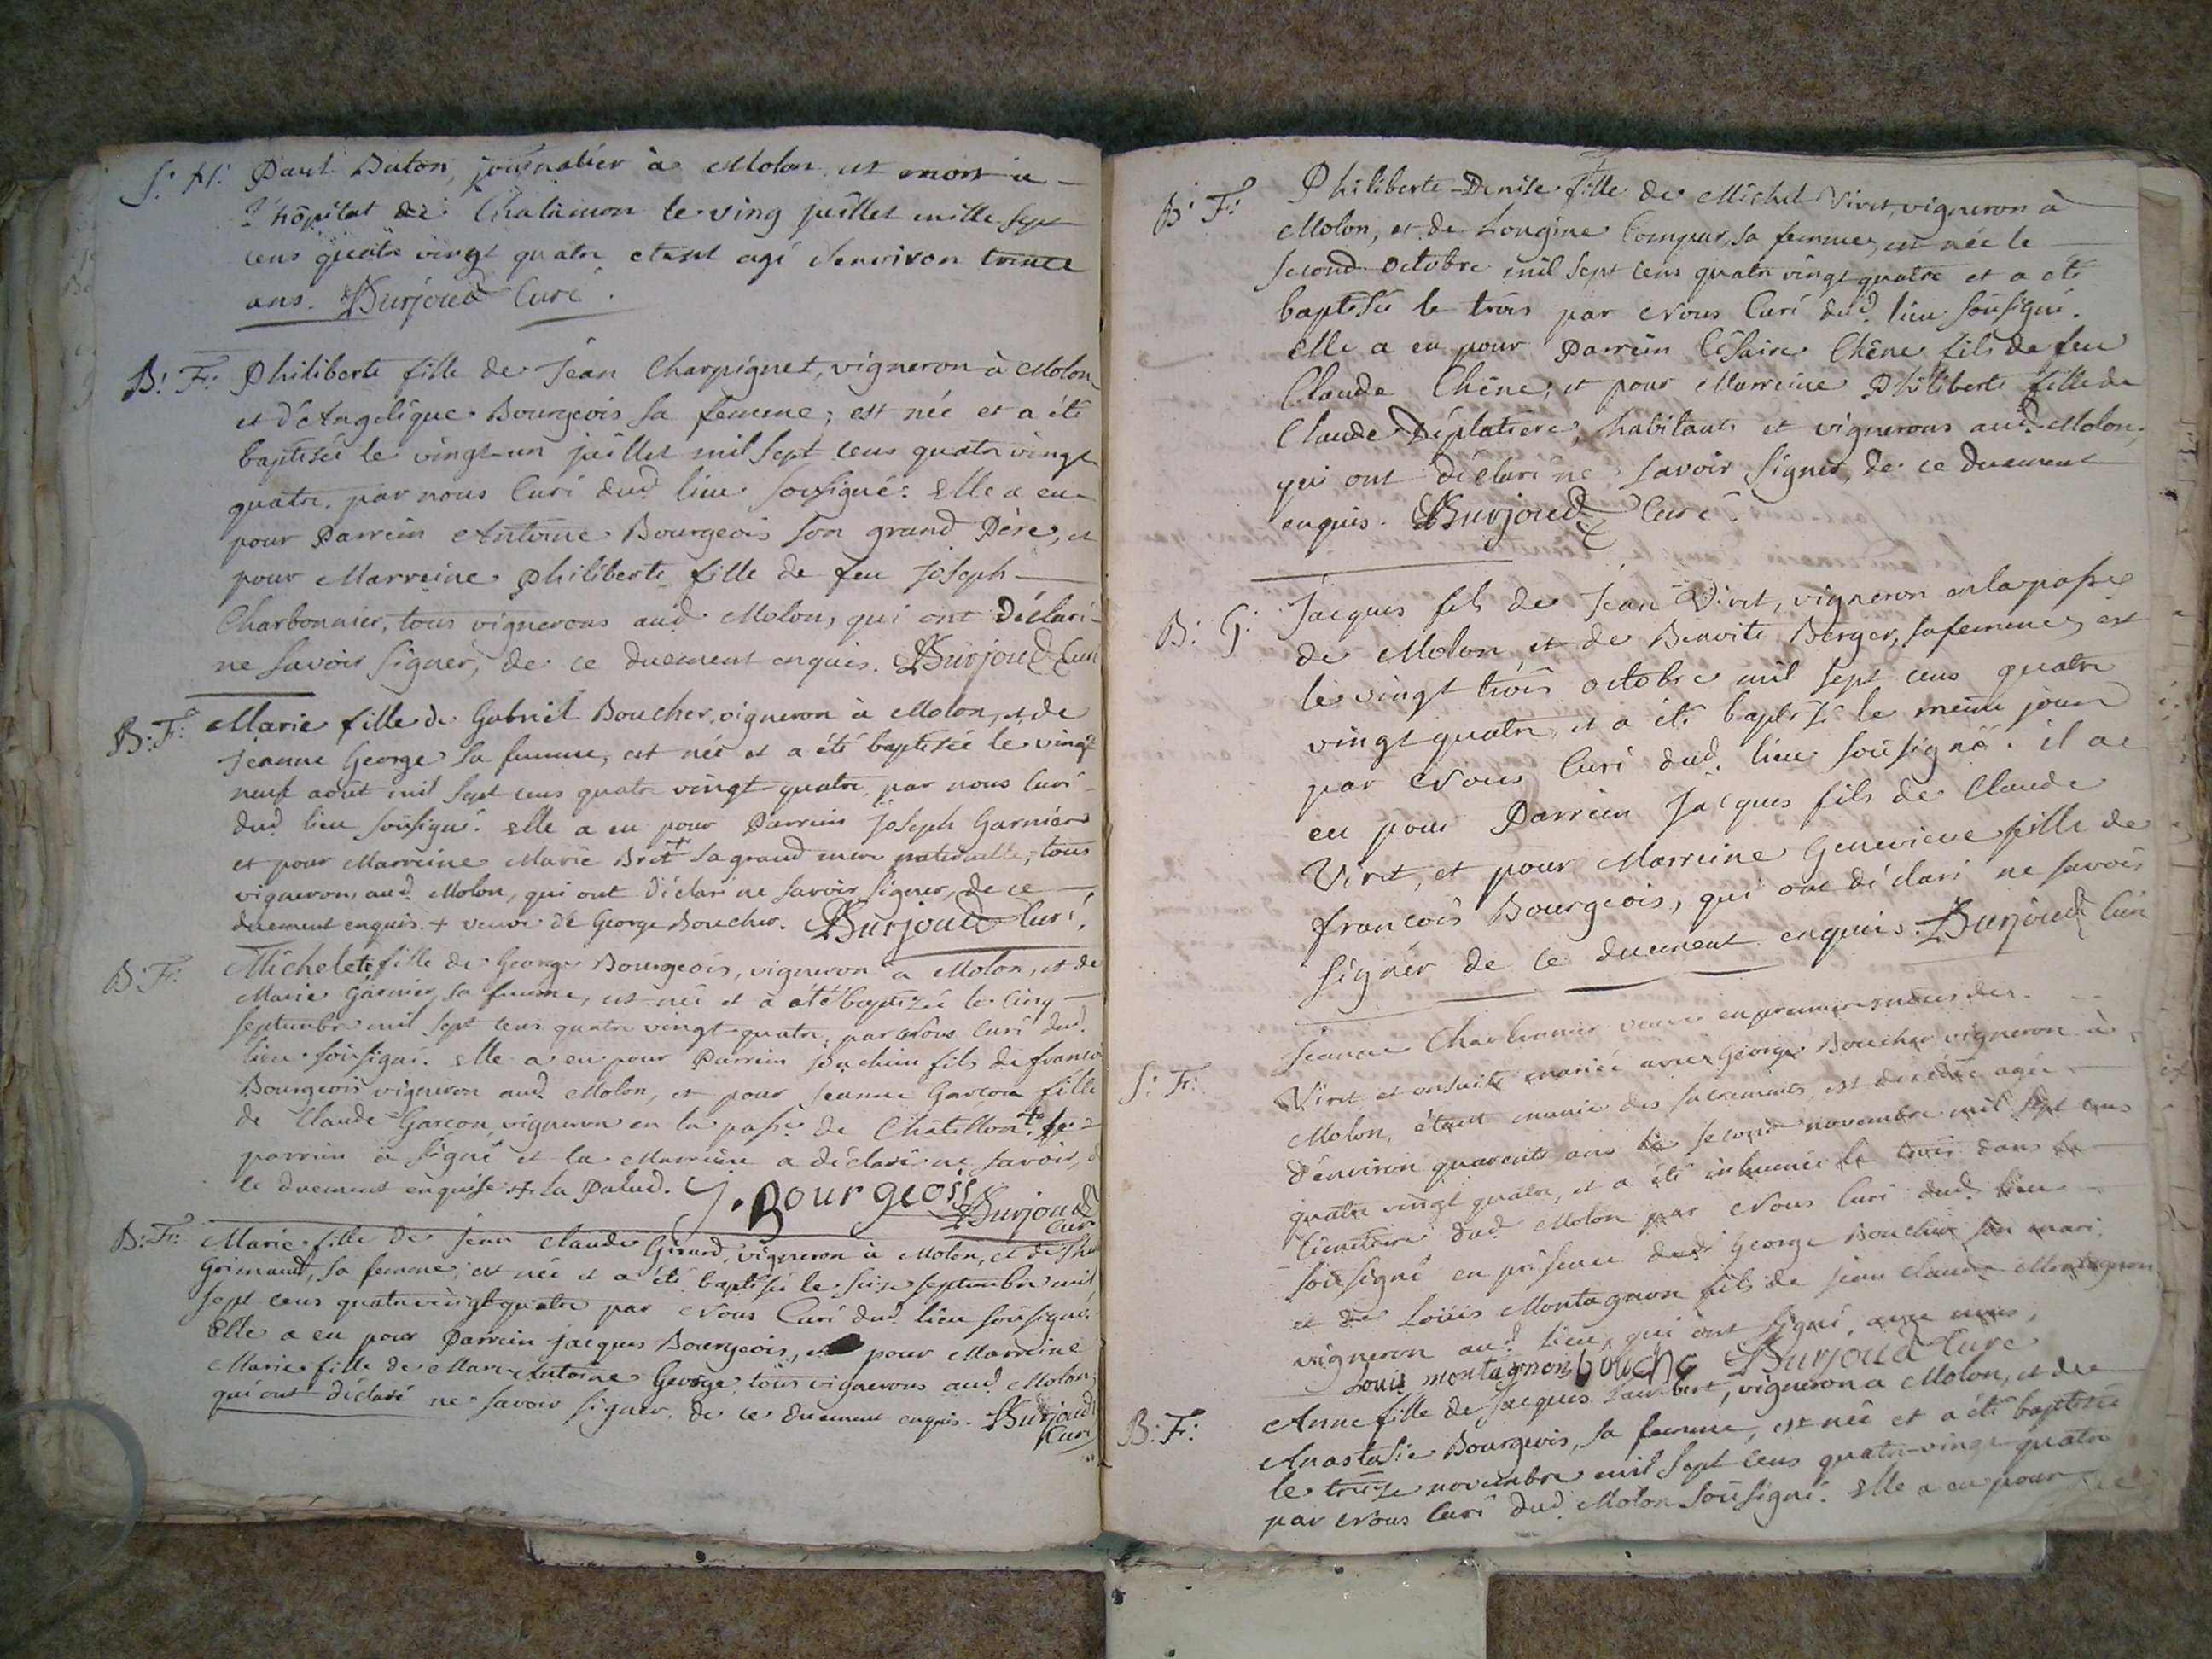 S: H: Paul Buton, journalier à Molon est mort à
l'hôpital de Chalamon le ving juillet mille sept
cens quatre vingt quatre etant agé denviron trente
ans. Burjoud Curé.
B: F: Philiberte fille de Jean Charpignet, vigneron à Molon
et d'Angélique Bourgeois sa femme; est née et a été
baptisée le vingt-un juillet mil sept cens quatre vingt
quatre, par nous Curé dud. lieu sousigné. Elle a eu
pour Parrein Antoine Bourgeois son grand Père, et
pour Marreine Philiberte fille de feu Joseph
Charbonnier, tous vignerons aud. Molon, qui ont déclaré
ne savoir signer, de ce duement enquis. Burjoud Curé
B: F: Marie fille de Gabriel Boucher, vigneron à Molon, et de
Jeanne George sa femme, est née et a été baptisée le vingt
neuf août mil sept cens quatre vingt quatre, par nous Curé
dud. lieu sousigné. Elle a eu pour Parrein Joseph Garnier
et pour Marreine Marie Bret + sa grand mere paternelle, tous
vignerons aud. Molon, qui ont déclaré ne savoir signer, de ce
duement enquis. + veuve de George Boucher. Burjoud Curé.
B: F: Michelete fille de George Bourgeois, vigneron à Molon, et de
Marie Garnier sa femme, est née et a été baptisée le cinq
septembre mil sept cens quatre vingt quatre, par Nous Curé dud.
lieu sousigné. Elle a eu pour Parrein Joachim fils de françois
Bourgeois vigneron aud. Molon, et pour Jeanne Garçon fille
de Claude Garçon, vigneron en la passe de Châtillon + Le
parrein a signé et la Marreine a déclaré ne savoir, de
ce duement enquise + la Palud. J. Bourgeois Burjoud
Curé
B: F: Marie fille de Jean Claude Girard, vigneron à Molon, et de
Grimaud, sa femme; est née et a été baptisée le seize septembre mil
sept cens quatre vingt quatre par Nous Curé dud. lieu sousigné.
Elle a eu pour Parrein Jacques Bourgeois, et pour Marreine
Marie fille de Marc Antoine George, tous vignerons aud. Molon,
qui ont déclaré ne savoir signer, de ce duement enquis. Burjoud
Curé
B: F: Philiberte-Denise fille de Michel Viret, vigneron à
Molon, et de Longine Compar, sa femme, est née le
second octobre mil sept cens quatre vingt quatre et a été
baptisée le trois par Nous Curé dud. lieu sousigné.
Elle a eu pour Parrein Césaire Chêne fils de feu
Claude Chêne, et pour Marreine Philiberte fille de
Claude Déplatiere, habitants et vignerons aud. Molon,
qui ont déclaré ne savoir signer, de ce duement
enquis. Burjoud Curé.
B: G: Jacques fils de Jean Viret, vigneron en la passe
de Molon, et de Benoite Berger, sa femme, est
né vingt trois octobre mil sept cens quatre
vingt quatre, et a été baptisé le même jour
par Nous Curé dud. lieu sousigné. il a
eu pour Parrein Jacques fils de Claude
Viret, et pour Marreine Genevieve fille de
francois Bourgeois, qui ont déclaré ne savoir
signer de ce duement enquis. Burjoud Curé
S: F: Jeanne Charbonnier veuve en premieres noces de
Viret et ensuite mariée avec George Boucher vigneron à
Molon, étant munie des sacrements, est décédée agée
d'environ quarente ans le second novembre mil sept cens
quatre vingt quatre, et a été inhumée le trois dans le
Cimetiere dud. Molon par Nous Curé dud. lieu
sousigné en présence dud. George Boucher son mari,
et de Loüis Montagnon fils de Jean Claude Montagnon
vigneron aud. lieu, qui ont signé, avec nous,
Louis montagnon bouche Burjoud Curé
B: F: Anne fille de Jacques Lambert, vigneron a Molon, et de
Anastasie Bourgeois, sa femme, est née et a été baptisée
le treize novembre mil sept cens quatre-vingt quatre
par Nous Curé dud. Molon sousigné. Elle a eu pour